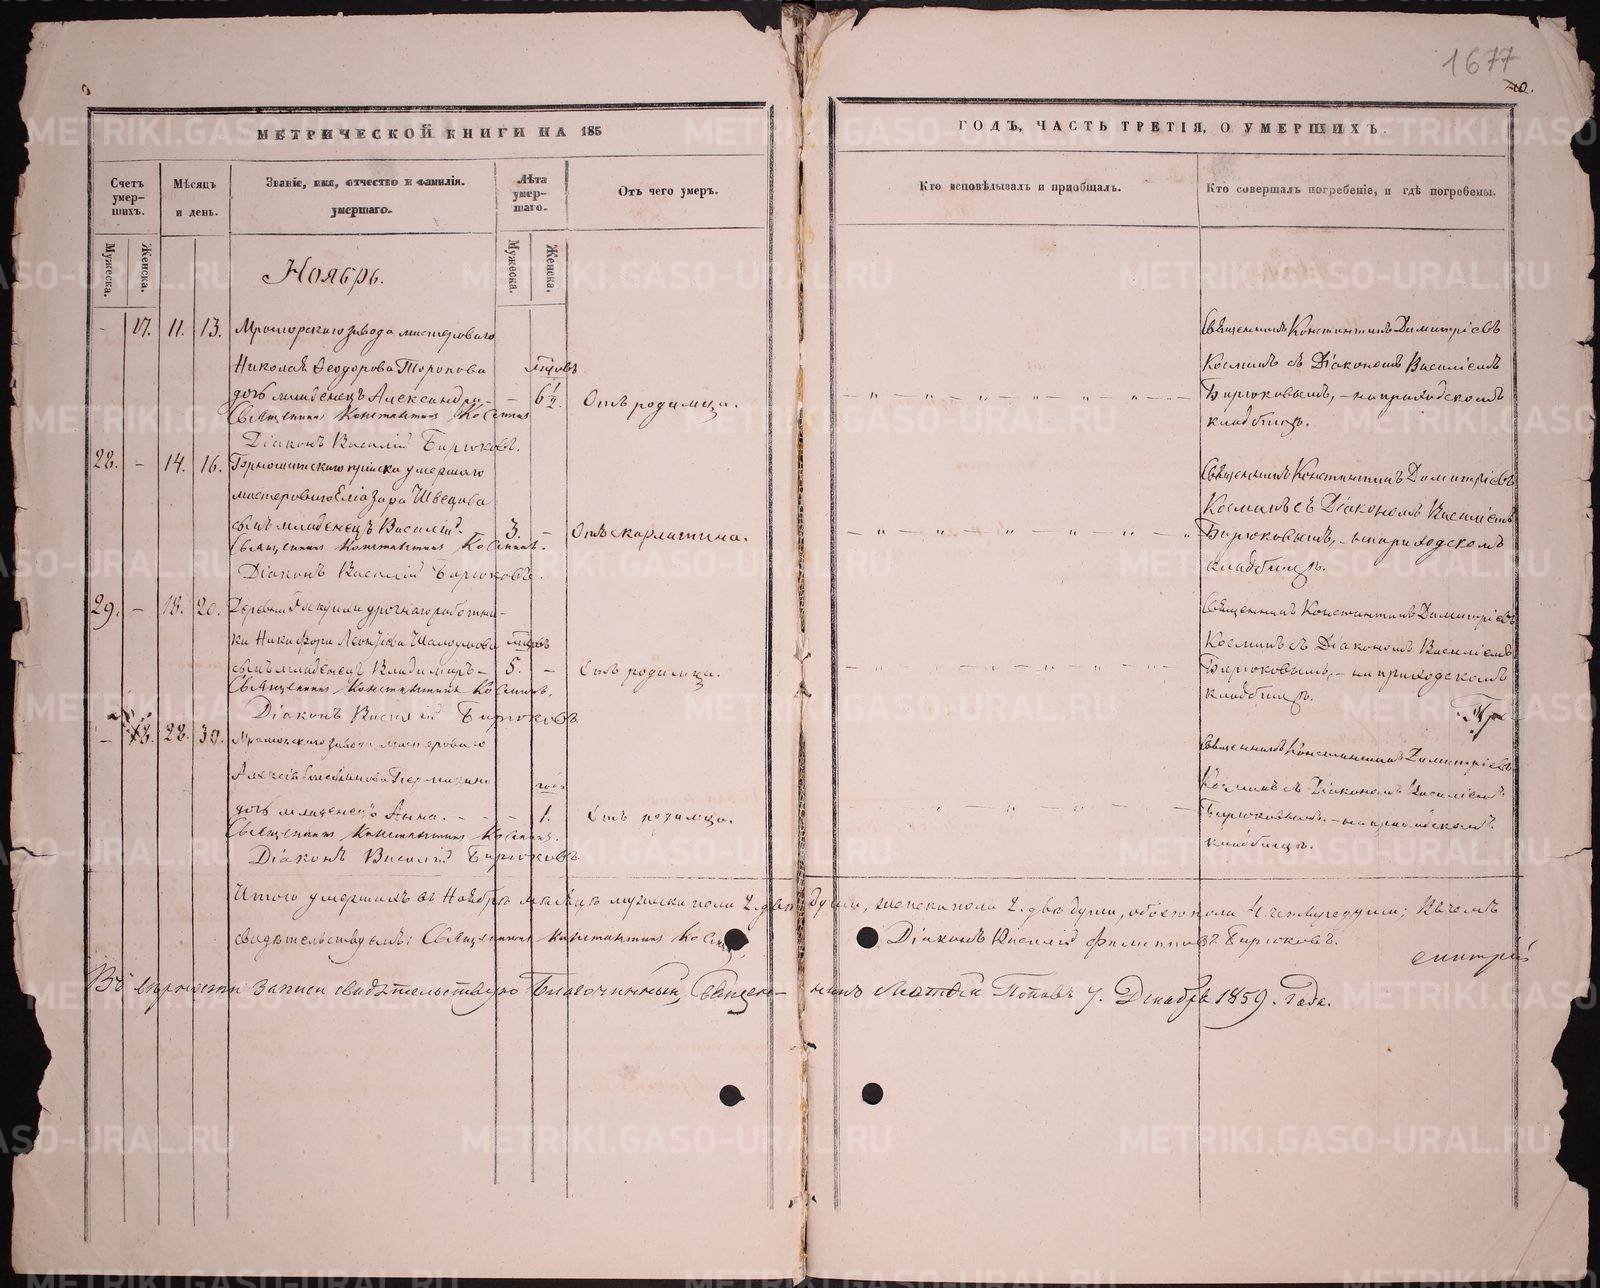 1677
20.
МЕТРИЧЕСКОЙ КНИГИ НА 185
ГОДЪ, ЧАСТЬ ТРЕТІЯ, О УМЕРШИХЪ.
Счетъ умер-шихъ.
Мѣсяцъ и день.
Званіе, имя, отчество и фамилія. умершаго.
Лѣта умер-шаго.
Отъ чего умеръ.
Кто исповѣдывалъ и пріобщалъ.
Кто совершалъ погребеніе, и гдѣ погребены.
Мужеска.
Женска.
Мужеска.
Женска.
Ноябрь.
- 17. 11. 13. Мраморскаго завода мастероваго
Николая Ѳеодорова Торопова
дочь младенецъ Александра - - 6 1/2. Отъ родимца.
Священникъ Константинъ Косминъ
Діаконъ Василій Бирюковъ.
Священникъ Константинъ Димитріевъ
Косминъ съ Діакономъ Василіемъ
Бирюковымъ, - на приходскомъ
кладбищѣ.
28. - 14. 16. Горнощитскаго пріиска умершаго
мастероваго Еліазара Швецова
сынъ младенецъ Василій. 3. - Отъ скарлатина.
Священникъ Константинъ Косминъ.
Діаконъ Василій Бирюковъ.
Священникъ Константинъ Димитріевъ
Косминъ съ Діакономъ Василіемъ
Бирюковымъ, - на приходскомъ
кладбищѣ.
29. - 18. 20. Деревни урочнаго работни-
ка Никифора Леонтіева
сынъ младенецъ Владиміръ - 5. - Отъ родимца.
Священникъ Константинъ Косминъ.
Діаконъ Василій Бирюковъ
Священникъ Константинъ Димитріевъ
Косминъ съ Діакономъ Василіемъ
Бирюковымъ, - на приходскомъ
кладбищѣ.
- 18. 28. 30. Мраморскаго завода мастероваго
Алексія
годъ
дочь младенецъ Анна. - - - 1. Отъ родимца.
Священникъ Константинъ Косминъ.
Діаконъ Василій Бирюковъ
Священникъ Константинъ Димитріевъ
Косминъ съ Діакономъ Василіемъ
Бирюковымъ, - на приходскомъ
кладбищѣ.
Итого умершихъ въ Ноябрѣ мѣсяцѣ мужеска пола 2. двѣ души, женска пола 2. двѣ души, обоего пола 4. четыре души; въ чемъ
свидѣтельствуемъ: Священникъ Константинъ Косминъ, Діаконъ Василій Филипповъ Бирюковъ.
Въ вѣрности записи свидѣтельствую Благочинный, Священ-никъ Матѳій Поповъ 7. Декабря 1859. Года.
METRIKI.GASO-URAL.RU